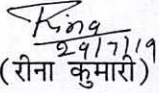 Rina
29/7/19
(रीना कुमारी)